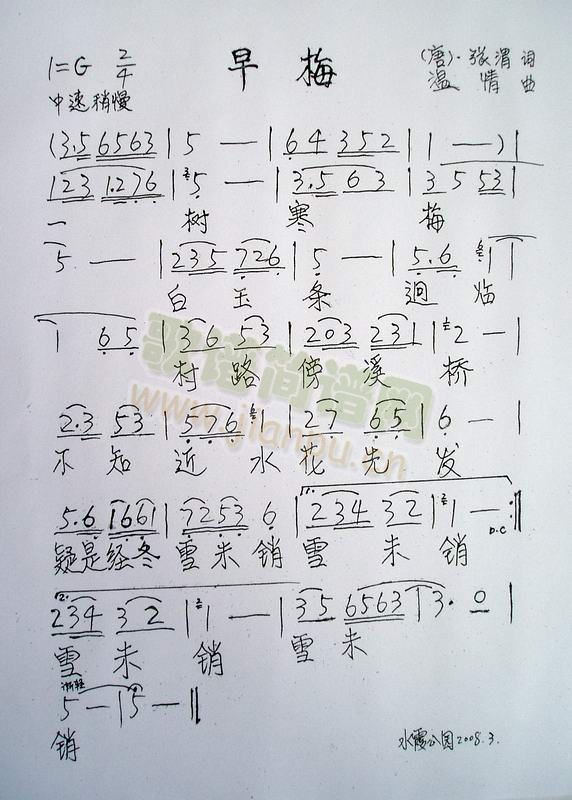 1=G 2/4 早梅 (唐)·张渭 词
中速稍慢 温情 曲
(3.5 6563 | 5 — | 64 352 | 1 — ) |
123 1.276 | 5 — | 3.5 63 | 35 53 |
一 树 寒 梅
5 — — | 235 726 | 5 — | 5.6 1 |
白 玉 条 迥 临
1 65 | 36 53 | 203 231 | 2 — |
村 路 傍 溪 桥
2.3 53 | 5 6 1 | 27 65 | 6 — |
不 知 近 水 花 先 发
5.6 1661 | 7253 6 | 234 32 | 1 — :||
D.C
疑是经冬 雪未销 雪 未 销
2.
234 32 | 1 — | 35 6563 | 3. 0 |
雪 未 销 雪 未
渐轻
5 — | 5 — ||
销 水霞公园2008.3.
歌谱简谱网
www.jianpu.cn